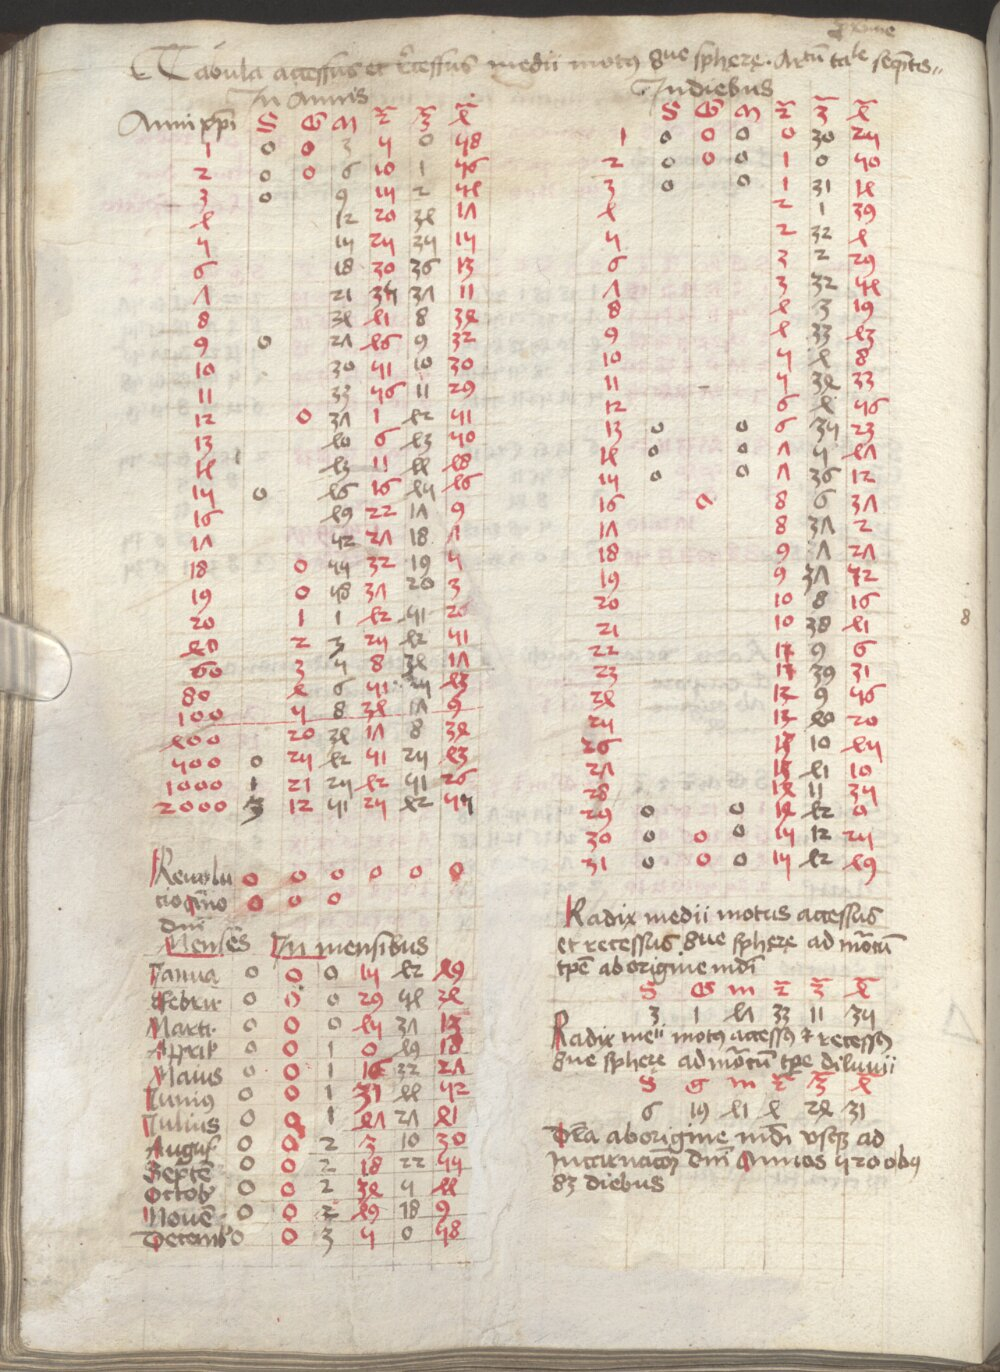 Tabula accessus et recessus medii motus 8ue sphere. Artum tale sequentes
In Annis
Anni xpi S G M 2 3 4
1 0 0 3 5 0 58
2 0 0 6 10 1 56
3 0 9 15 2 54
4 12 20 34 17
5 15 25 35 15
6 18 30 36 13
7 21 35 37 11
8 24 41 8 34
9 0 27 46 9 32
10 30 51 10 30
11 33 56 11 29
12 0 37 1 42 51
13 40 6 43 50
14 43 11 44 48
15 0 46 16 45 46
16 49 22 17 9
17 52 27 18 7
18 0 55 32 19 5
19 0 58 37 20 3
20 1 1 42 51 26
40 2 3 25 42 51
60 3 5 8 34 17
80 4 6 51 25 43
100 5 8 34 17 9
400 20 34 17 8 34
500 0 25 42 51 25 43
1000 1 21 25 42 51 26
2000 3 12 51 25 42 55
Revolu 0 0 0 0 0 0
tio 0 0 0
dni
Menses In mensibus
Janua 0 0 0 15 42 49
Februr 0 0 0 29 54 24
Marti 0 0 0 45 37 13
Appril 0 0 1 0 49 18
Maius 0 0 1 16 32 27
Junius 0 0 1 31 44 52
Julius 0 0 1 47 27 41
August 0 0 2 3 10 30
Septe 0 0 2 18 22 55
Octob 0 0 2 34 5 44
Noue 0 0 2 49 18 9
Decemb 0 0 3 5 0 58
In diebus
S G M 2 3 4
1 0 0 0 0 30 25
2 0 0 0 1 0 50
3 0 0 1 31 14
4 2 1 39
5 2 32 4
6 3 2 29
7 3 32 54
8 4 3 19
9 4 33 43
10 5 4 8
11 5 34 33
12 6 4 56
13 0 0 6 35 23
14 0 0 7 5 47
15 0 0 7 36 12
16 0 8 6 37
17 8 37 2
18 9 7 27
19 9 37 52
20 10 8 16
21 10 38 41
22 11 9 6
23 11 39 31
24 12 9 56
25 12 40 20
26 13 10 45
27 13 41 10
28 14 11 35
29 0 0 14 42 0
30 0 0 0 15 12 25
31 0 0 0 15 42 49
Radix medii motus accessus
et recessus 8ue sphere ad mortum
tpe ab origine mdi
S G m 2 3 4
3 1 47 33 11 35
Radix meii motus accessus et recessus
8ue sphere ad mortum tpe diluuii
S G m 2 3 4
6 19 41 4 24 31
Dria ab origine mdi usque ad
incarnacom dni Annos 5200 obus
83 diebus
8